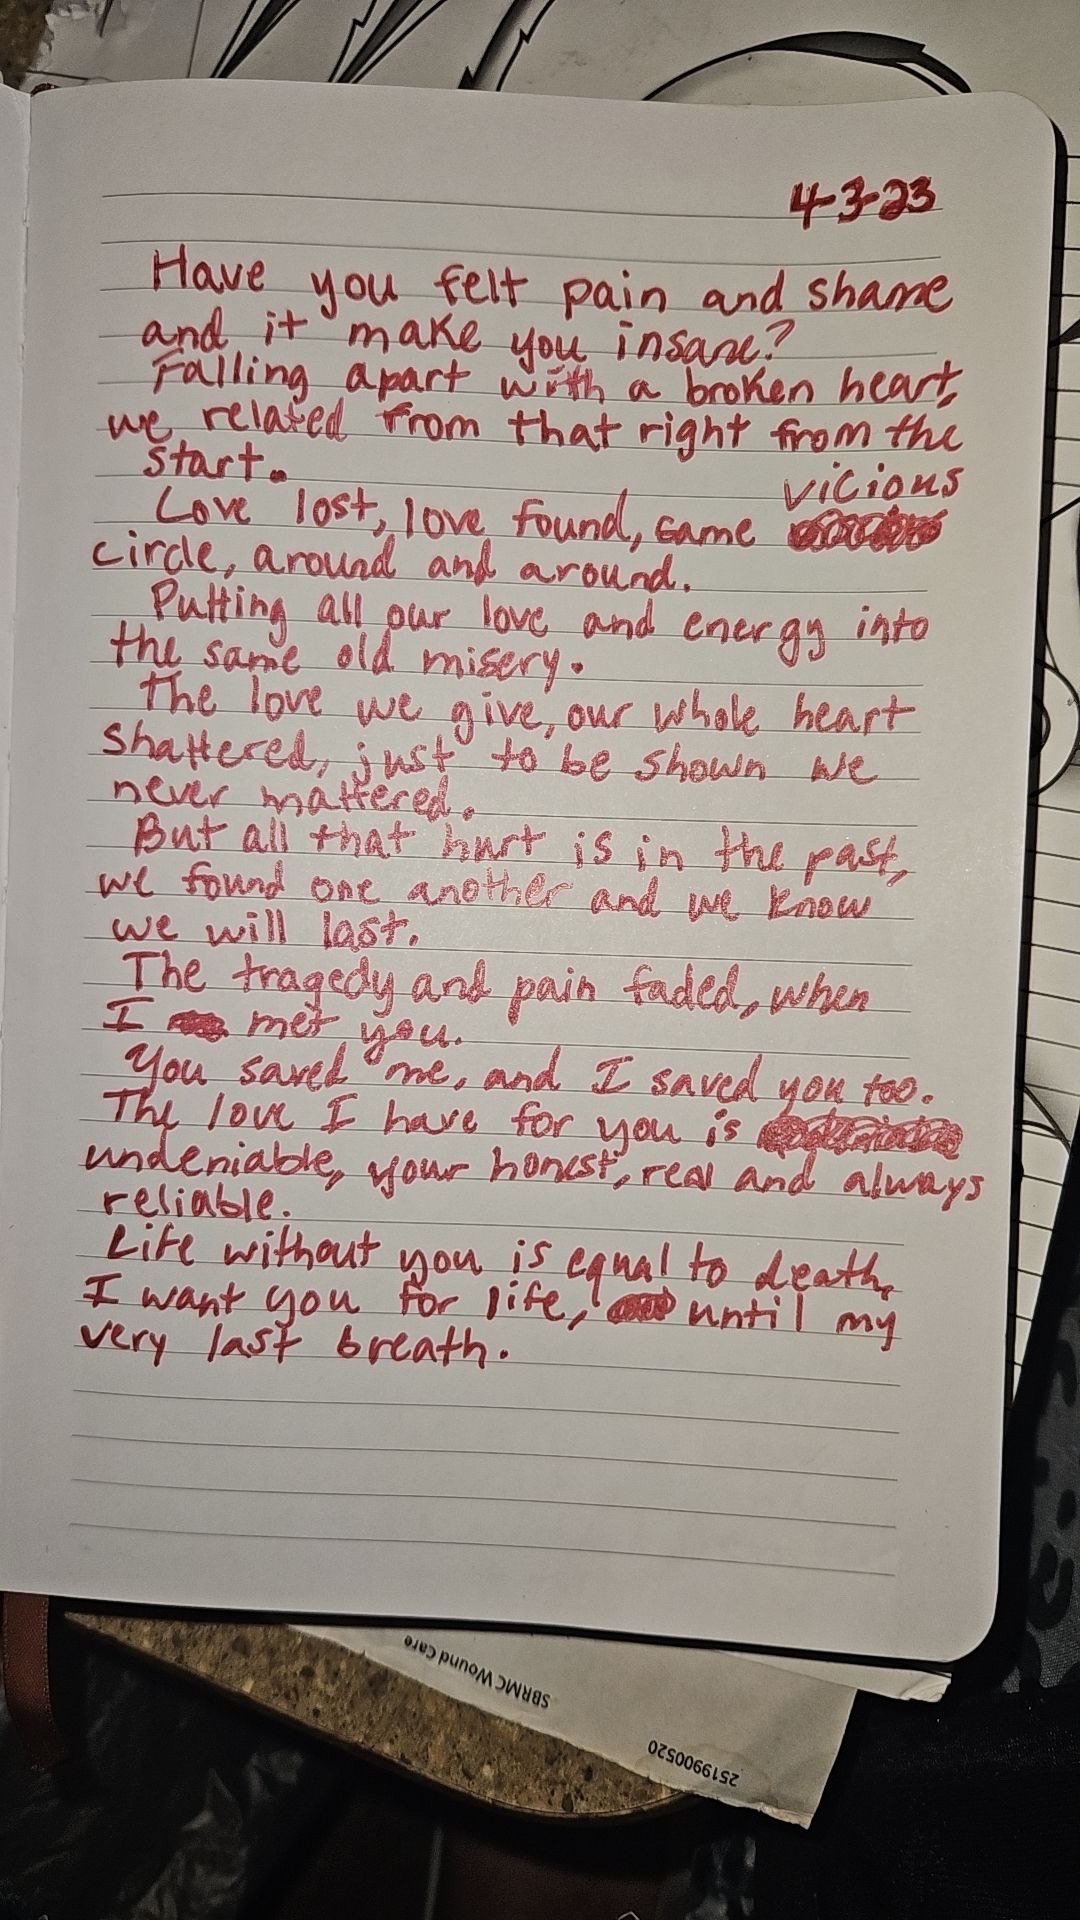 4-3-23
Have you felt pain and shame
and it make you insane?
Falling apart with a broken heart,
we related from that right from the
start.
vicious
Love lost, love found, same
circle, around and around.
Putting all our love and energy into
the same old misery.
The love we give, our whole heart
shattered, just to be shown we
never mattered.
But all that hurt is in the past,
we found one another and we know
we will last.
The tragedy and pain faded, when
I met you.
You saved me, and I saved you too.
The love I have for you is
undeniable, your honest, real and always
reliable.
Life without you is equal to death,
I want you for life, until my
very last breath.
SBRMC Wound Care
2519900520